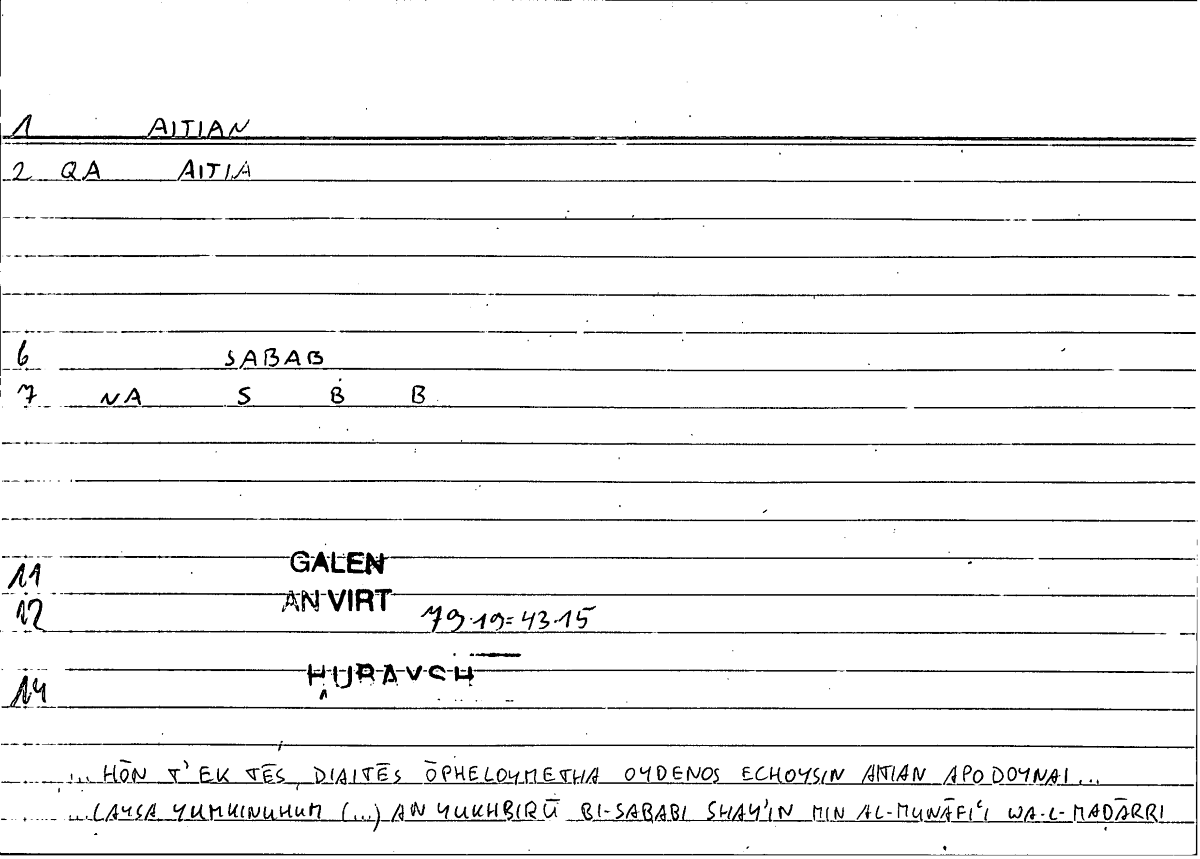 1 AITIAN
2 QA AITIA
6 SABAB
7 NA S B B
11 GALEN
12 AN VIRT 79.19=43.15
14 ḤURAVSH
... HŌN T' EK TĒS DIAITĒS ŌPHELOYMETHA OYDENOS ECHOYSIN AITIAN APODOYNAI...
... LAYSA YUMKINUHUM (...) AN YUKHBIRŪ BI-SABABI SHAY'IN MIN AL-MUNĀFIʿI WA-L-MADĀRRI